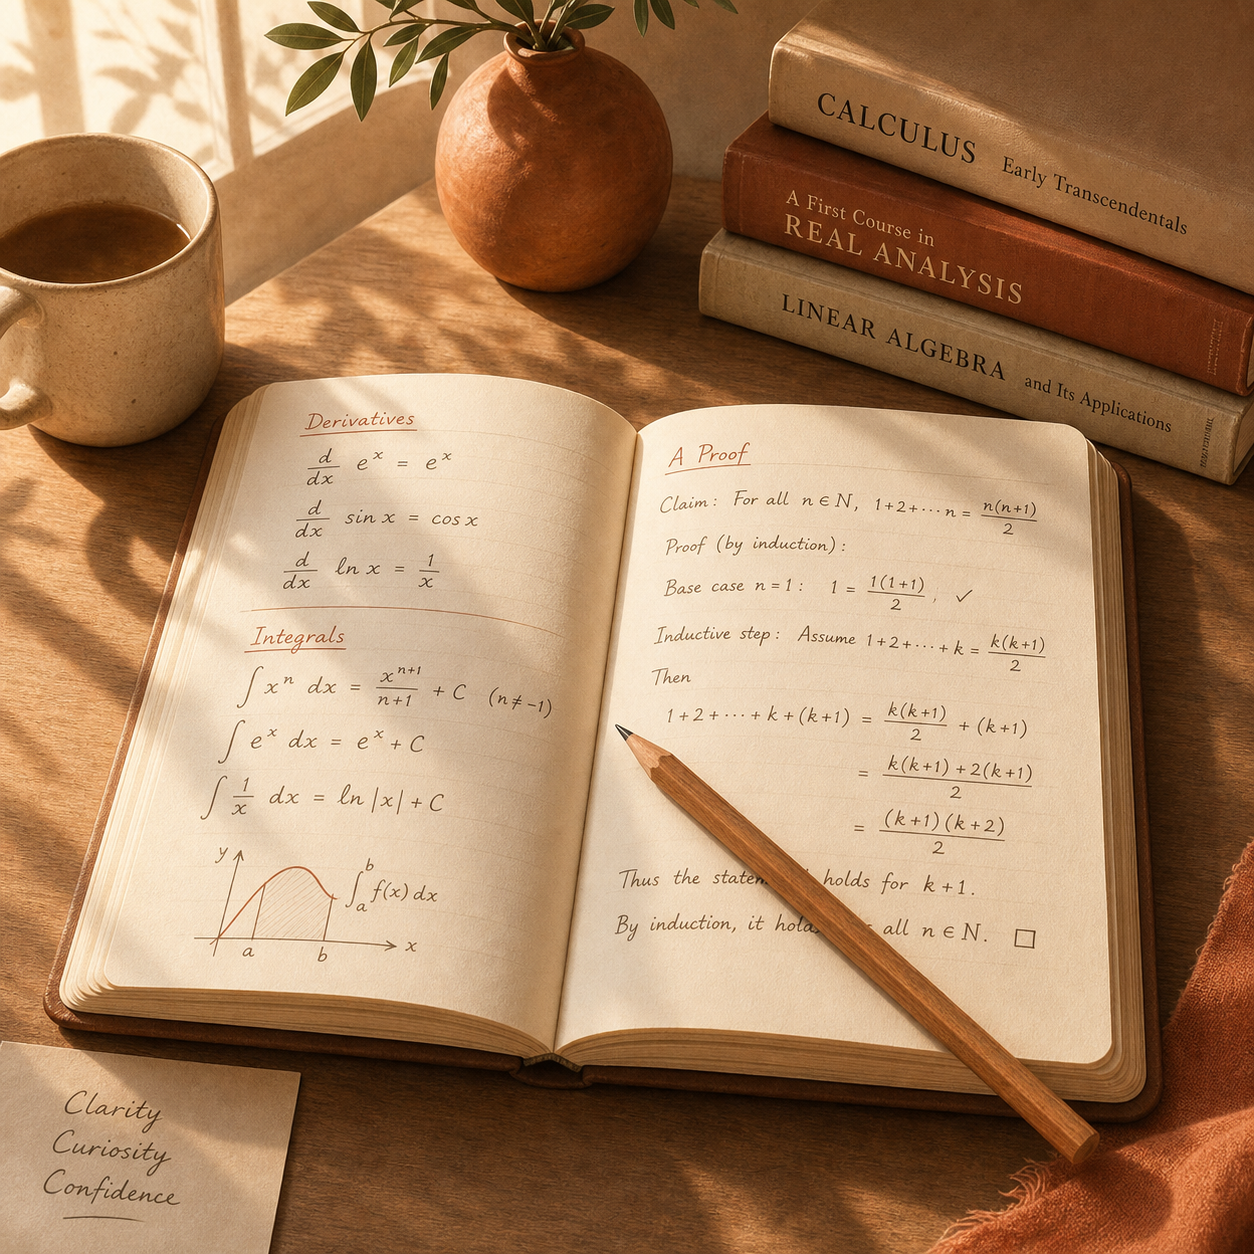 CALCULUS Early Transcendentals
A First Course in
REAL ANALYSIS
LINEAR ALGEBRA and Its Applications
Derivatives
d/dx e^x = e^x
d/dx sin x = cos x
d/dx ln x = 1/x
Integrals
∫ x^n dx = x^(n+1)/(n+1) + C (n ≠ -1)
∫ e^x dx = e^x + C
∫ 1/x dx = ln |x| + C
y
∫_a^b f(x) dx
x
a b
A Proof
Claim: For all n ∈ N, 1+2+⋯n = n(n+1)/2
Proof (by induction):
Base case n=1: 1 = 1(1+1)/2, ✓
Inductive step: Assume 1+2+⋯+k = k(k+1)/2
Then
1+2+⋯+k+(k+1) = k(k+1)/2 + (k+1)
= k(k+1)+2(k+1)/2
= (k+1)(k+2)/2
Thus the holds for k+1.
By induction, it all n ∈ N. □
Clarity
Curiosity
Confidence